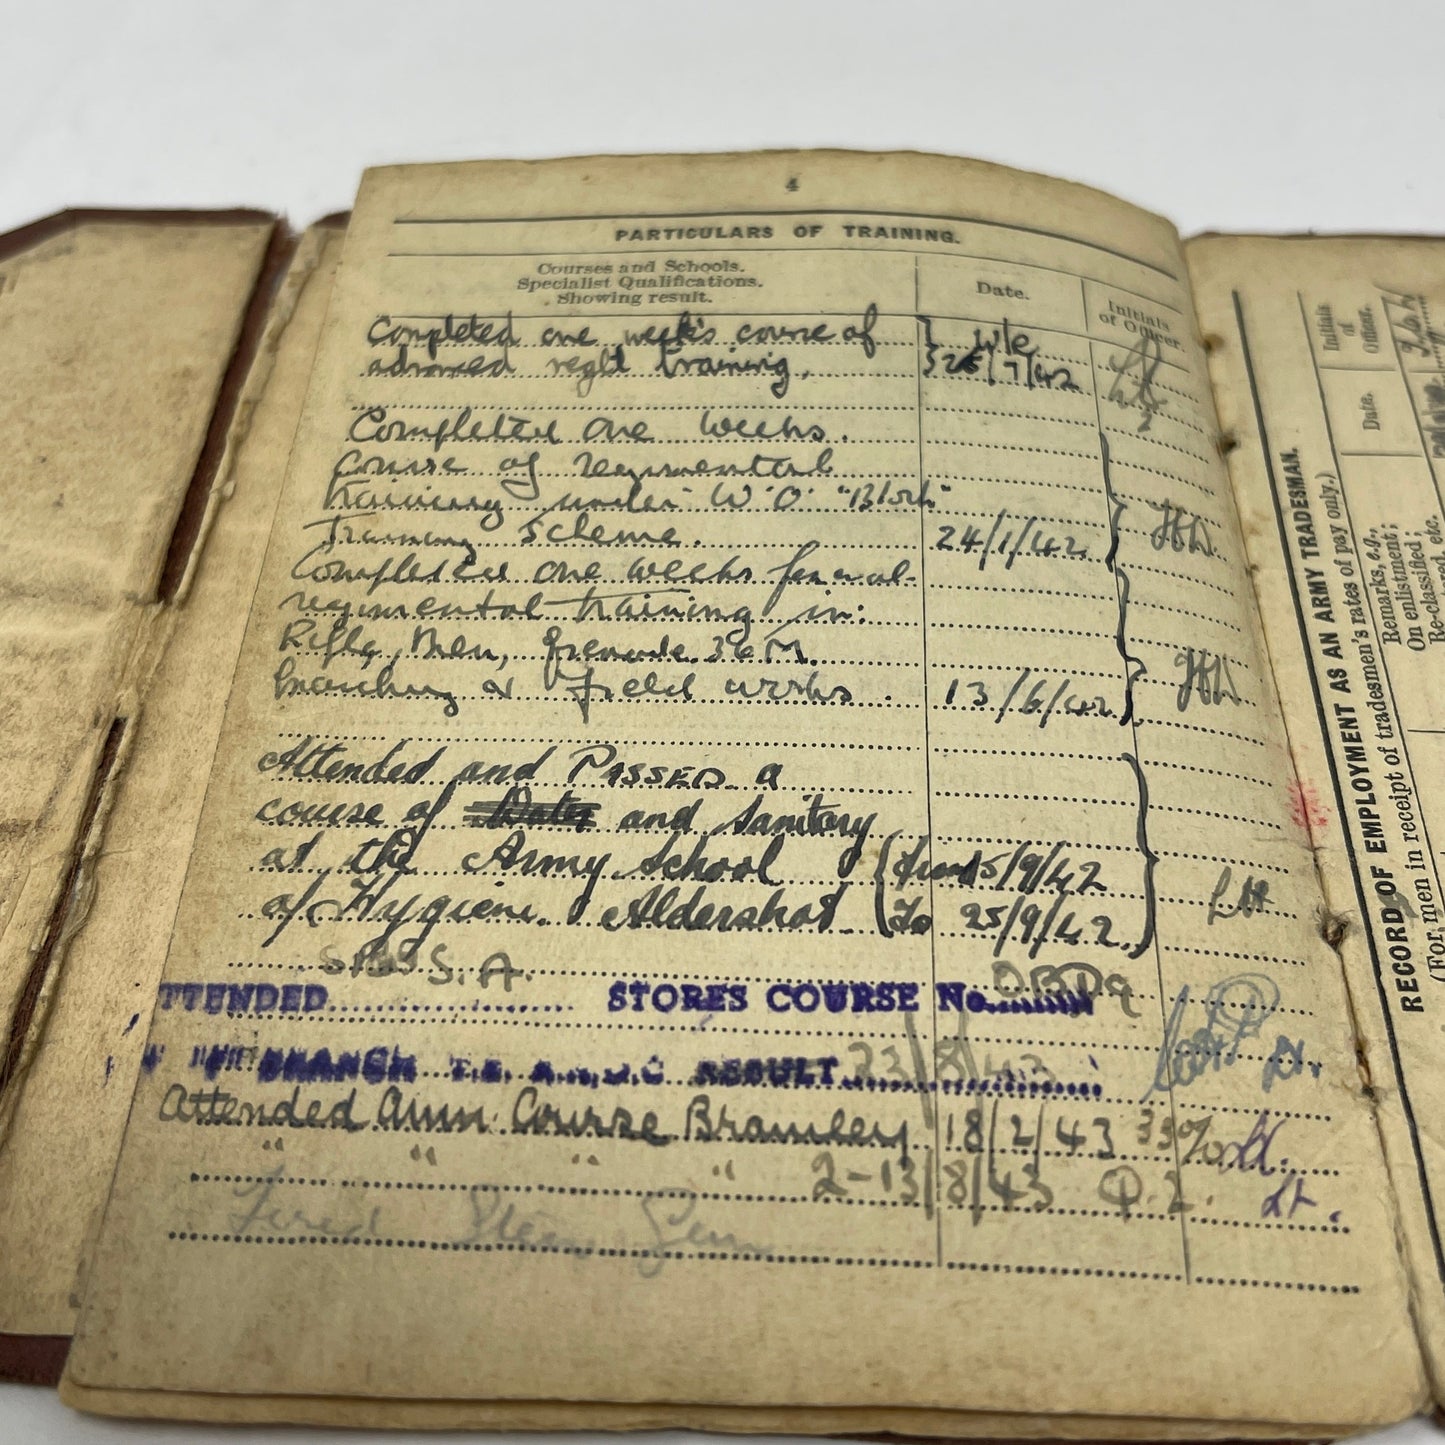 4
PARTICULARS OF TRAINING.
Courses and Schools.
Specialist Qualifications.
Showing result.
Date.
Initials
of Officer.
Completed one week's course of
advanced regtl training. W/E 25/7/42
Completed one weeks.
course of regimental
training under W.O. "Block"
Training scheme. 24/1/42
Completed one weeks general
regimental training in:
Rifle, Bren, Grenade 36 M.
marching & field works. 13/6/42
Attended and PASSED a
course of Water and Sanitary
at the Army School from 15/9/42
of Hygiene. Aldershot. To 25/9/42. LH
S.A.
ATTENDED STORES COURSE No.
BRANCH RESULT 23/8/43
Attended Amn. Course Bramley 18/2/43 33%
" " " " 2-13/8/43 Q.2. Lt.
Fired Sten Gun
RECORD OF EMPLOYMENT AS AN ARMY TRADESMAN.
(For men in receipt of tradesmen's rates of pay only.)
Remarks, e.g.,
On enlistment;
Re-classified;
etc.
Date.
Initials
of
Officer.